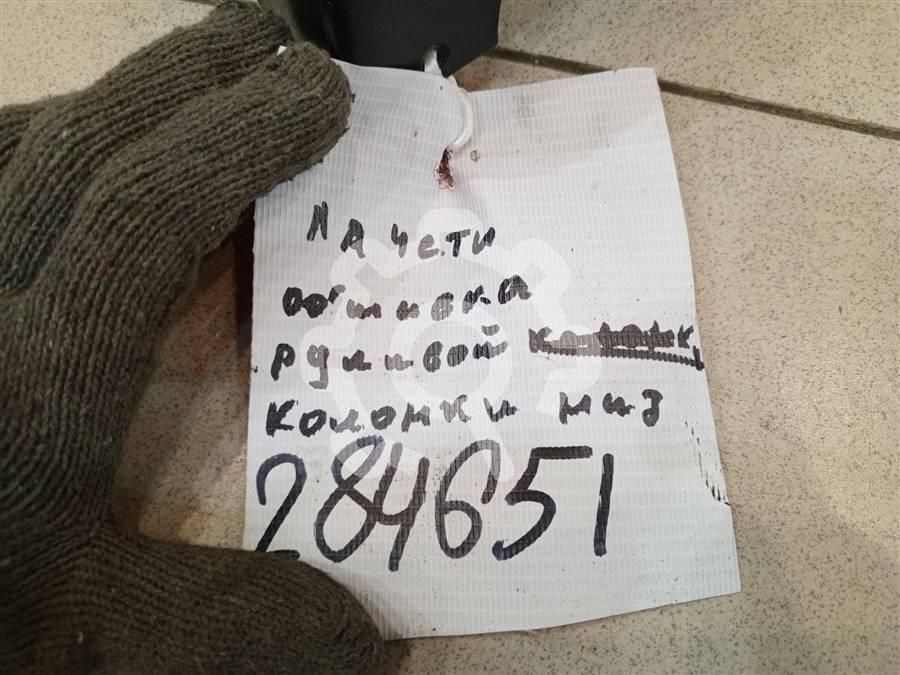 На чсти
обшивка
руливой
колонки низ
284651